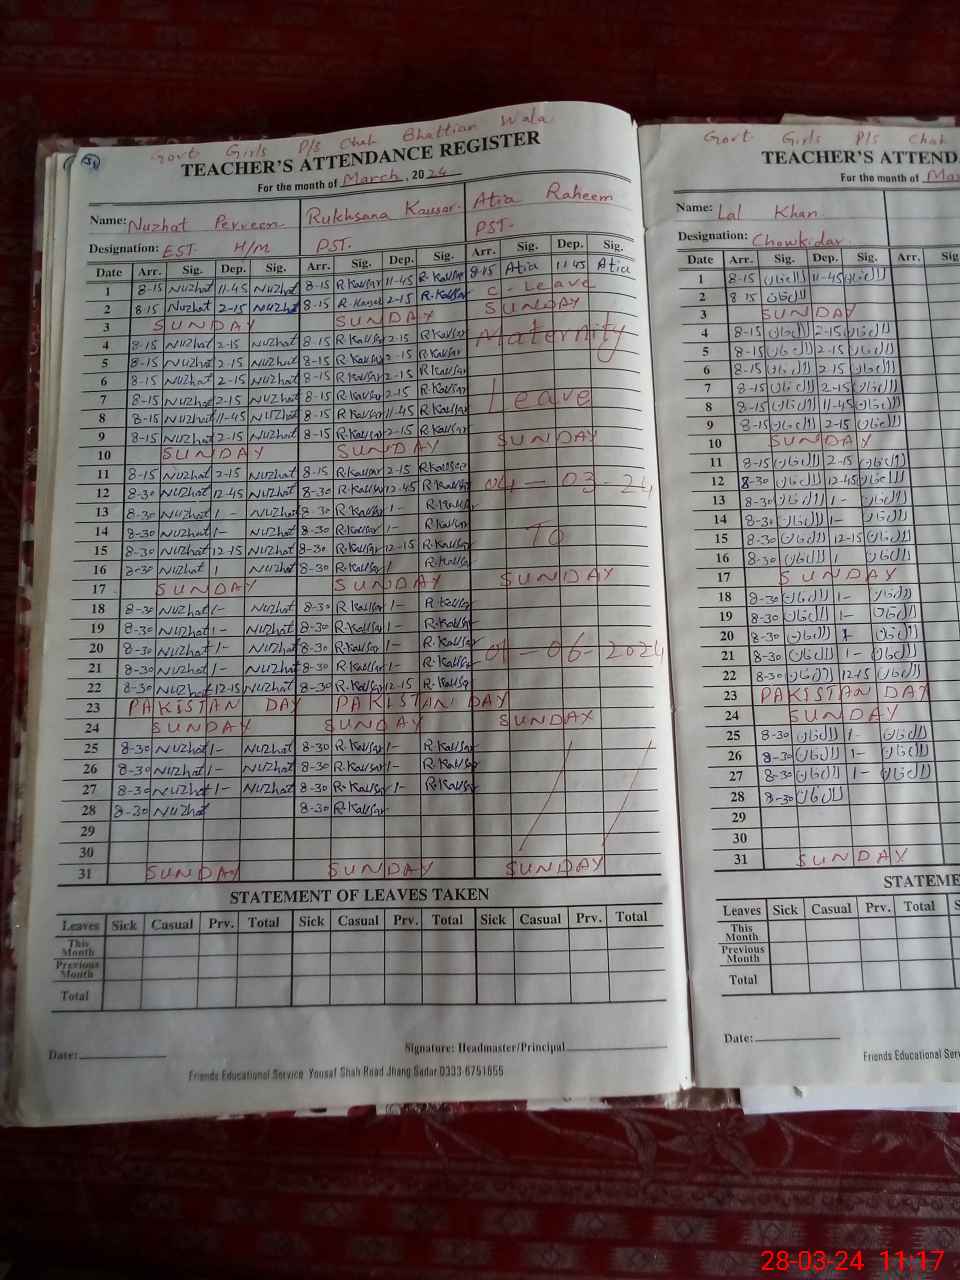 Govt Girls P/s Chah Bhattian Wala
TEACHER'S ATTENDANCE REGISTER
For the month of March, 2024
Name: Nuzhat Perveen Rukhsana Kausar Atia Raheem
Designation: EST H/M PST. PST.
Date Arr. Sig. Dep. Sig. Arr. Sig. Dep. Sig. Arr. Sig. Dep. Sig.
1 8-15 Nuzhat 11-45 Nuzhat 8-15 R.Kausar 11-45 R.Kausar 8-15 Atia 11-45 Atia
2 8-15 Nuzhat 2-15 Nuzhat 8-15 R.Kausar 2-15 R.Kausar C-Leave
3 SUNDAY SUNDAY SUNDAY
4 8-15 Nuzhat 2-15 Nuzhat 8-15 R.Kausar 2-15 R.Kausar Maternity
5 8-15 Nuzhat 2-15 Nuzhat 8-15 R.Kausar 2-15 R.Kausar
6 8-15 Nuzhat 2-15 Nuzhat 8-15 R.Kausar 2-15 R.Kausar
7 8-15 Nuzhat 2-15 Nuzhat 8-15 R.Kausar 2-15 R.Kausar Leave
8 8-15 Nuzhat 11-45 Nuzhat 8-15 R.Kausar 11-45 R.Kausar
9 8-15 Nuzhat 2-15 Nuzhat 8-15 R.Kausar 2-15 R.Kausar
10 SUNDAY SUNDAY SUNDAY
11 8-15 Nuzhat 2-15 Nuzhat 8-15 R.Kausar 2-15 R.Kausar
12 8-30 Nuzhat 12-45 Nuzhat 8-30 R.Kausar 12-45 R.Kausar 04-03-24
13 8-30 Nuzhat 1- Nuzhat 8-30 R.Kausar 1- R.Kausar
14 8-30 Nuzhat 1- Nuzhat 8-30 R.Kausar 1- R.Kausar To
15 8-30 Nuzhat 12-15 Nuzhat 8-30 R.Kausar 12-15 R.Kausar
16 8-30 Nuzhat 1 Nuzhat 8-30 R.Kausar 1 R.Kausar
17 SUNDAY SUNDAY SUNDAY
18 8-30 Nuzhat 1- Nuzhat 8-30 R.Kausar 1- R.Kausar
19 8-30 Nuzhat 1- Nuzhat 8-30 R.Kausar 1- R.Kausar
20 8-30 Nuzhat 1- Nuzhat 8-30 R.Kausar 1- R.Kausar
21 8-30 Nuzhat 1- Nuzhat 8-30 R.Kausar 1- R.Kausar 01-06-2024
22 8-30 Nuzhat 12-15 Nuzhat 8-30 R.Kausar 12-15 R.Kausar
23 PAKISTAN DAY PAKISTAN DAY
24 SUNDAY SUNDAY SUNDAY
25 8-30 Nuzhat 1- Nuzhat 8-30 R.Kausar 1- R.Kausar
26 8-30 Nuzhat 1- Nuzhat 8-30 R.Kausar 1- R.Kausar
27 8-30 Nuzhat 1- Nuzhat 8-30 R.Kausar 1- R.Kausar
28 8-30 Nuzhat 8-30 R.Kausar
29
30
31 SUNDAY SUNDAY SUNDAY
STATEMENT OF LEAVES TAKEN
Leaves Sick Casual Prv. Total Sick Casual Prv. Total Sick Casual Prv. Total
This Month
Previous Month
Total
Date: Signature: Headmaster/Principal
Friends Educational Service Yousaf Shah Road Jhang Sadar 0333-6751655
Govt Girls P/s Chah
TEACHER'S ATTENDA
For the month of Mar
Name: Lal Khan
Designation: Chowkidar
Date Arr. Sig. Dep. Sig. Arr. Sig
1 8-15 لال خان 11-45 لال خان
2 8 15 لال خان
3 SUNDAY
4 8-15 لال خان 2-15 لال خان
5 8-15 لال خان 2-15 لال خان
6 8-15 لال خان 2-15 لال خان
7 8-15 لال خان 2-15 لال خان
8 8-15 لال خان 11-45 لال خان
9 8-15 لال خان 2-15 لال خان
10 SUNDAY
11 8-15 لال خان 2-15 لال خان
12 8-30 لال خان 12-45 لال خان
13 8-30 لال خان 1- لال خان
14 8-30 لال خان 1- لال خان
15 8-30 لال خان 12-15 لال خان
16 8-30 لال خان 1 لال خان
17 SUNDAY
18 8-30 لال خان 1- لال خان
19 8-30 لال خان 1- لال خان
20 8-30 لال خان 1- لال خان
21 8-30 لال خان 1- لال خان
22 8-30 لال خان 12-15 لال خان
23 PAKISTAN DAY
24 SUNDAY
25 8-30 لال خان 1- لال خان
26 8-30 لال خان 1- لال خان
27 8-30 لال خان 1- لال خان
28 8-30 لال خان
29
30
31 SUNDAY
STATEME
Leaves Sick Casual Prv. Total S
This Month
Previous Month
Total
Date:
Friends Educational Serv
28-03-24 11:17